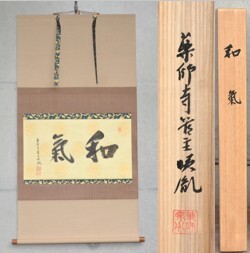 和氣
薬師寺管主暎胤
和氣